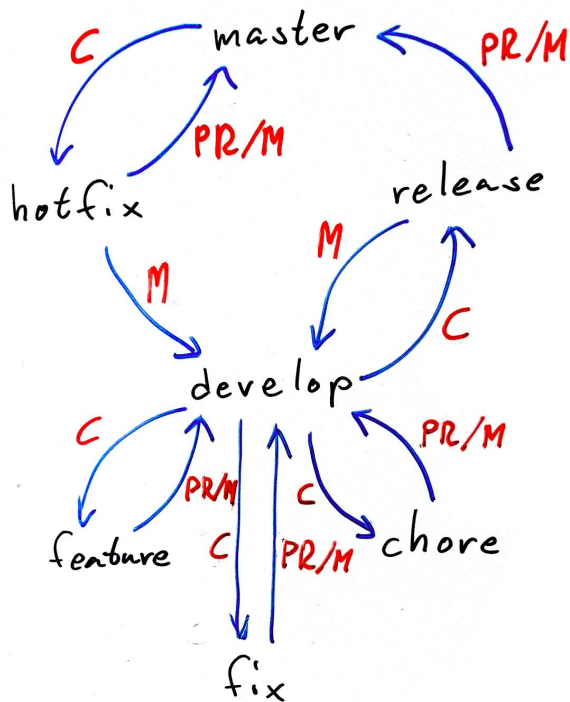 C
master
PR/M
PR/M
hotfix
release
M
M
C
develop
C
PR/M
PR/M
C
feature
C
PR/M
chore
fix